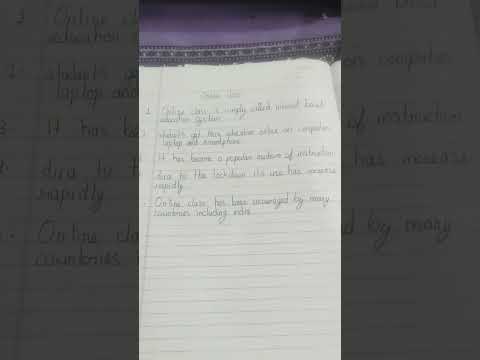 Online class
1. Online class is simply called internet based
education system
2. students get their education online on computer
laptop and smartphone
3. It has become a popular medium of instruction
due to the lockdown its use has increase
rapidly
Online class has been encouraged by many
countries including india